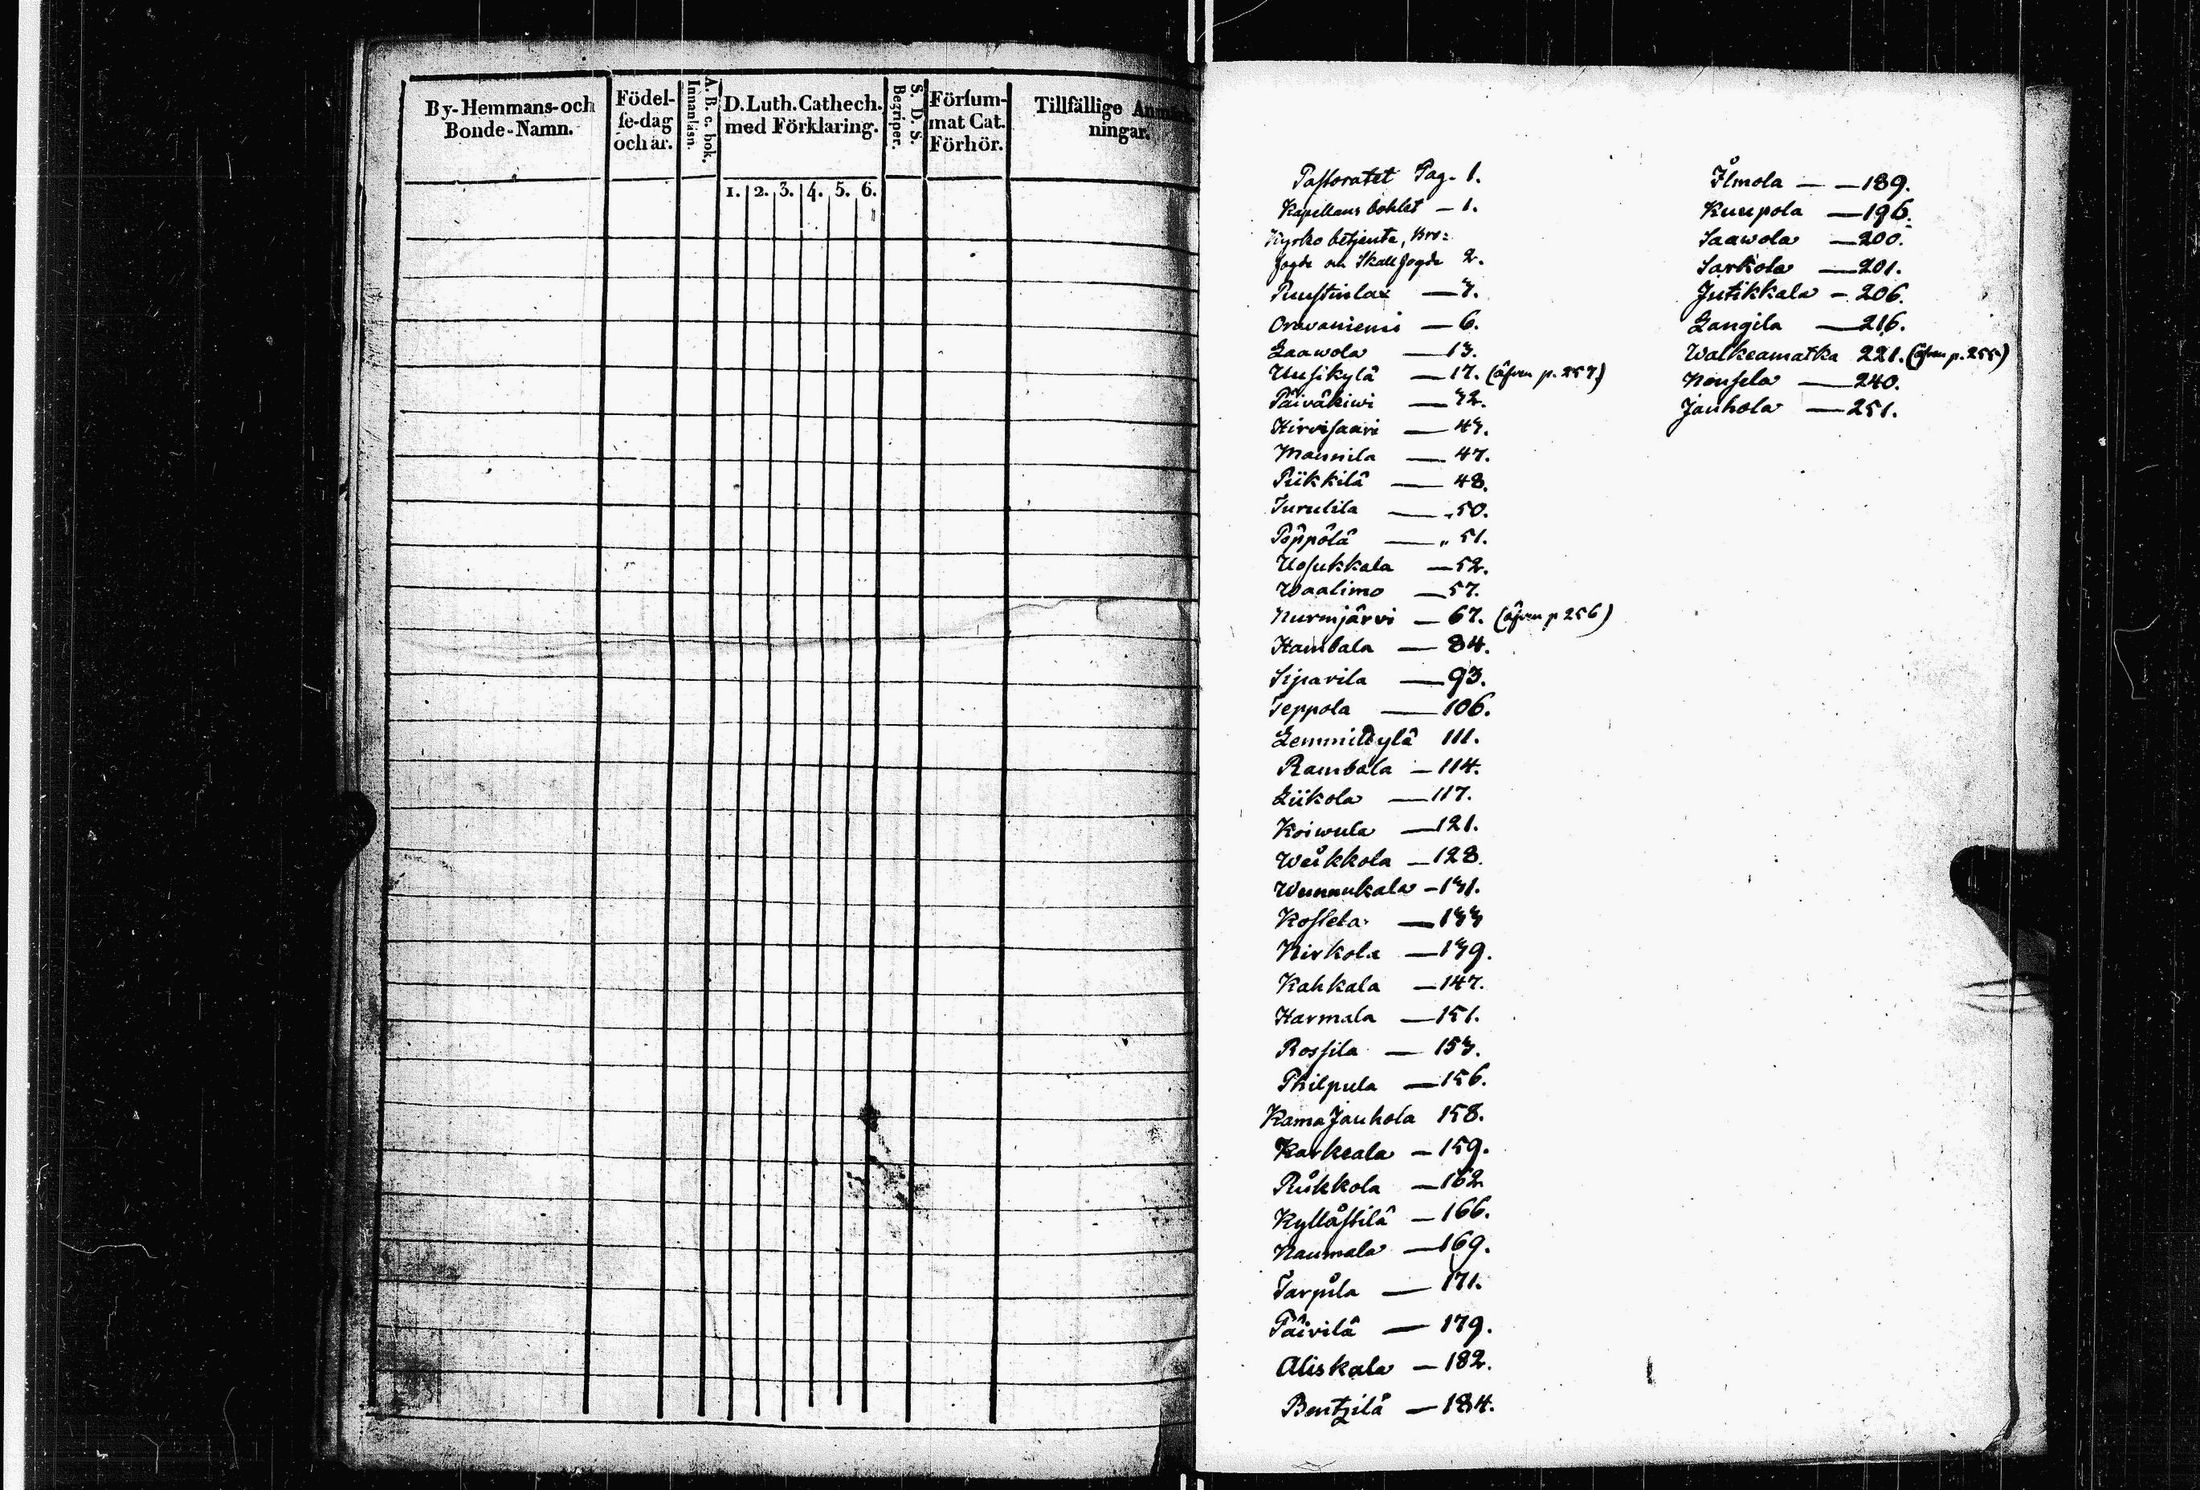 By-Hemmans-och
Bonde-Namn.
Födel-
ſe-dag
och år.
A. B. c. bok.
Innanläsn.
D. Luth. Cathech.
med Förklaring.
1. 2. 3. 4. 5. 6.
S. D. S.
Begriper.
Förſum-
mat Cat.
Förhör.
Tillfällige Anmärk-
ningar.
Pastoratet Pag. 1.
Kapellans bohlet — 1.
Kyrko betjente, Bro=
fogde och Skallfogde 2.
Puustinlax — 3.
Orawaniemi — 6.
Laawola — 13.
Uusikylä — 17. (äfven p. 257)
Päiväkiwi — 32.
Hirvisaari — 43.
Mannila — 47.
Piikkilä — 48.
Turulila — 50.
Pöppölä — „ 51.
Uosukkala — 52.
Waalimo — 57.
Nurmjärvi — 67. (äfven p 256)
Hambala — 84.
Siparila — 93.
Teppola — 106.
Lemmitkylä 111.
Rambala — 114.
Liikola — 117.
Koiwula — 121.
Weikkola — 128.
Wunnukala — 131.
Kosleta — 133
Kirkola — 139.
Kahkala — 147.
Harmala — 151.
Rossila — 153.
Philpula — 156.
Kama Jauhola 158.
Karkeala — 159.
Rukkola — 162
Kyllästilä — 166.
Naumala — 169.
Tarpila — 171.
Päivilä — 179.
Aliskala — 182.
Bentzilä — 184.
Ilmola — — 189.
Kuupola — 196.
Saawola — 200.
Sarkola — 201.
Jutikkala — 206.
Langila — 216.
Walkeamatka 221. (äfven p. 255)
Nousela — 240.
Jauhola — 251.